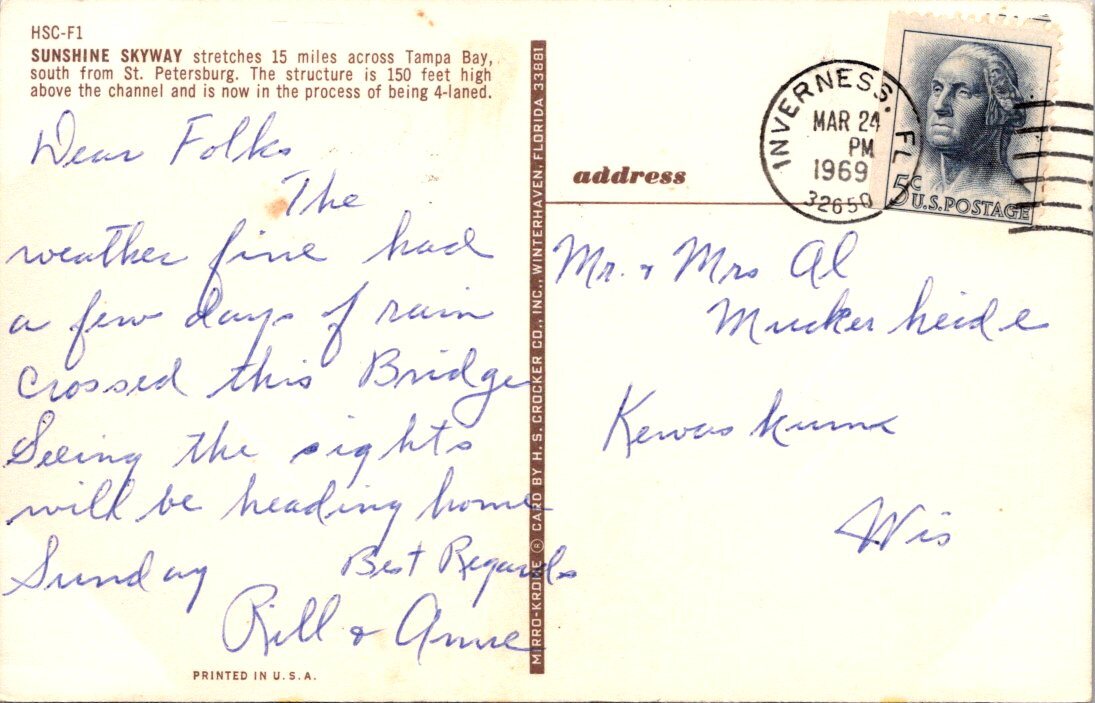 HSC-F1
SUNSHINE SKYWAY stretches 15 miles across Tampa Bay,
south from St. Petersburg. The structure is 150 feet high
above the channel and is now in the process of being 4-laned.
Dear Folks
The
weather fine had
a few days of rain
crossed this Bridge
Seeing the sights
will be heading home
Sunday Best Regards
Bill & Anne
PRINTED IN U.S.A.
MIRRO-KROME ® CARD BY H. S. CROCKER CO., INC., WINTERHAVEN, FLORIDA 33881
address
INVERNESS, FL
MAR 24
PM
1969
32650
5¢
U.S. POSTAGE
Mr. & Mrs Al
Muckerheide
Kewaskum
Wis